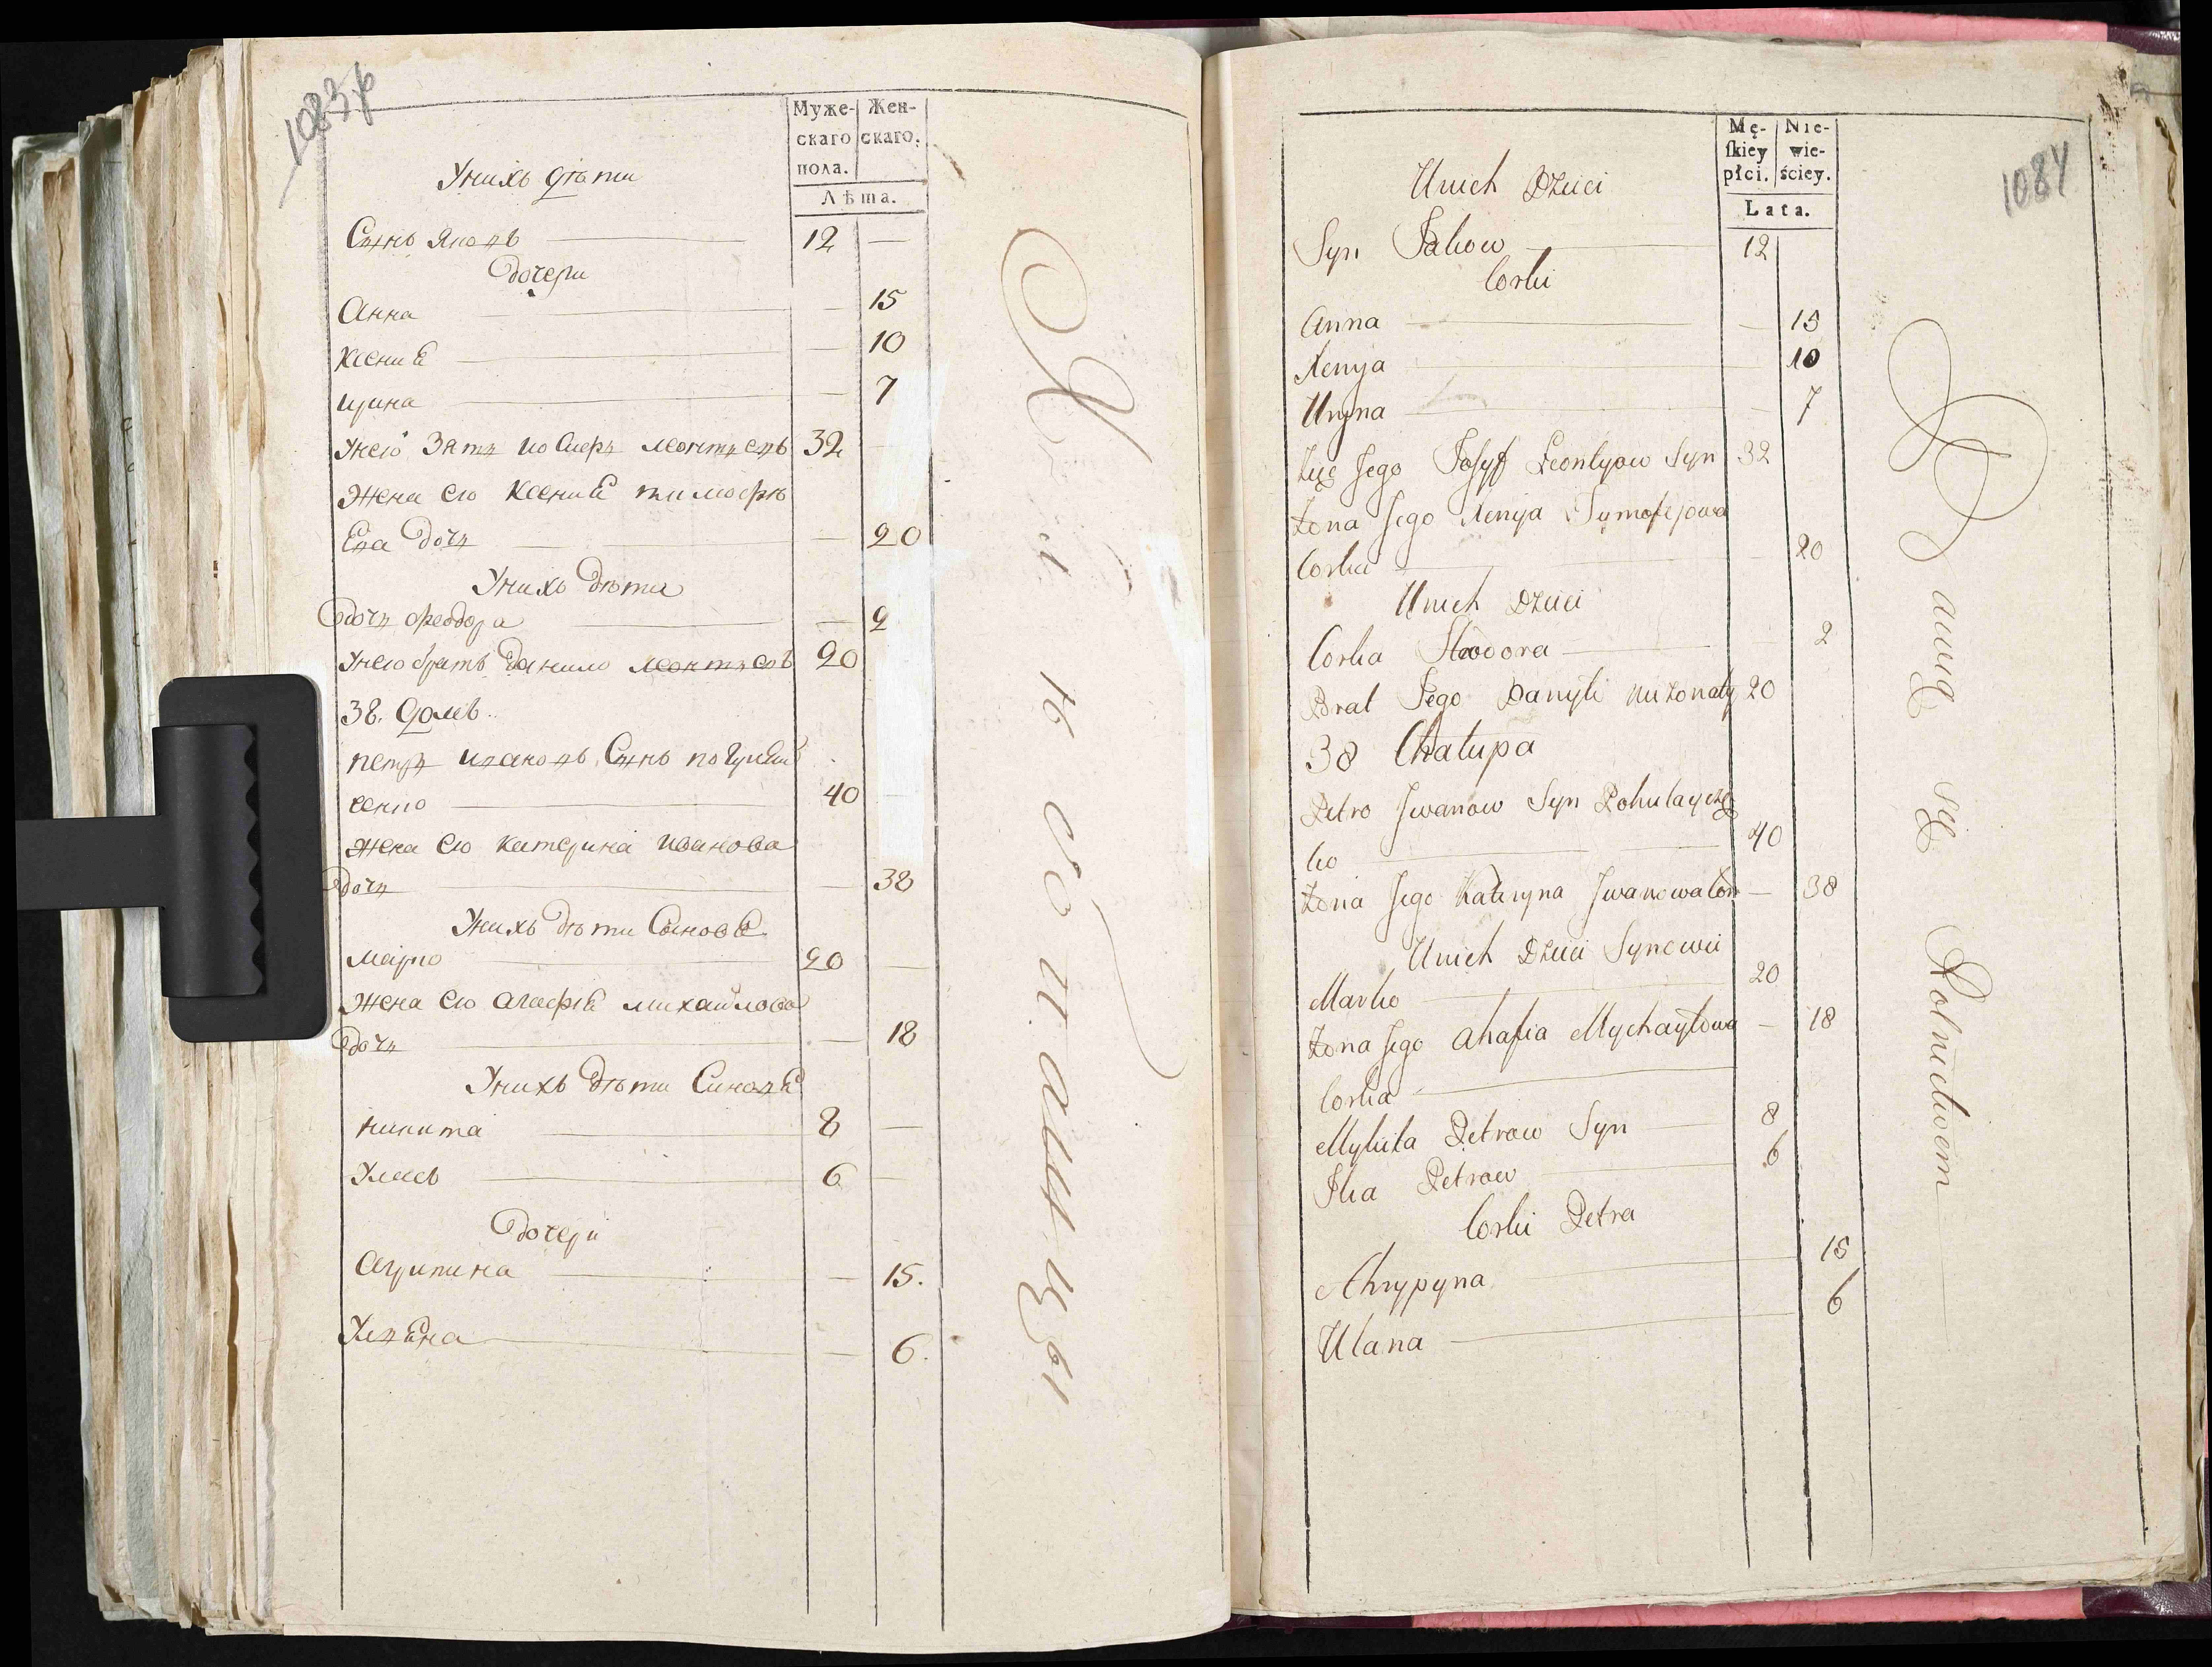 1083
Муже-
скаго
пола.
Жен-
скаго.
Лѣта.
Унихъ дѣти
Сынъ Яковъ 12 —
Дочери
Анна — 15
Ксения — 10
Ирина — 7
Унего Зять иосифъ леонтьевъ 32 —
Жена его Ксения тимофѣ
Ева дочь — 20
Унихъ дѣти
Дочь феодора — 2
Унего братъ Данило леонтьевъ 20
38. домъ.
петръ ивановъ Сынъ погуляй
ченко 40 —
Жена его катерина иванова
Дочь — 38
Унихъ дѣти Сыновя
марко 20 —
Жена его агафия михайлова
Дочь — 18
Унихъ дѣти Синовя
никита 8 —
6 —
Дочери
агрипина — 15.
Улена — 6.
1084
Mę-
skiey
płci.
Nie-
wie-
ściey.
Lata.
Unich Dzieci
Syn Jakow 12
Corki
Anna — 15
Xenya 10
Uryna — 7
Zięć Jego Josyff Leontyow Syn 32
Zona Jego Xenija Tymofejowa
Corka — 20
Unich Dzieci
Corka Feodora — 2
Brat Jego Danyło nieżonaty 20
38 Chałupa
Petro Jwanow Syn Pohulaycze
ko 40
Zona Jego Kateryna Jwanowa Cor — 38
Unich Dzieci Synowie
Marko 20
Zona Jego Ahafia Mychayłowa — 18
Corka
Mykita Petrow Syn 8
Jlia Petrow 6
Corki Petra
Ahrypyna 15
Ulana 6
Rolnictwem